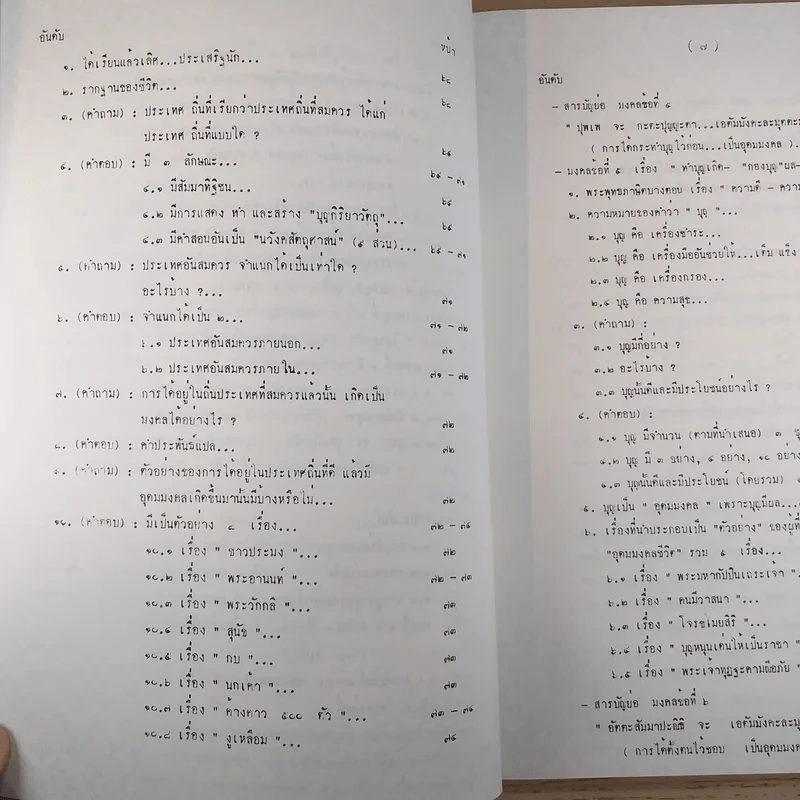 อันดับ
หน้า
๑. ได้เรียนแล้วเลิศ...ประเสริฐนัก...
๖๘
๒. รากฐานของชีวิต...
๖๘
๓. (คำถาม) : ประเทศ ถิ่นที่เรียกว่าประเทศถิ่นที่สมควร ได้แก่
ประเทศ ถิ่นที่แบบใด ?
๖๙
๔. (คำตอบ) : มี ๓ ลักษณะ...
๖๙ - ๗๑
๔.๑ มีสัมมาทิฐิชน...
๖๙
๔.๒ มีการแสดง ทำ และสร้าง "บุญกิริยาวัตถุ"...
๖๙
๔.๓ มีคำสอนอันเป็น "นวังคสัตถุศาสน์" (๙ ส่วน)...
๖๙ - ๗๑
๕. (คำถาม) : ประเทศอันสมควร จำแนกได้เป็นเท่าใด ?
อะไรบ้าง ?...
๗๑
๖. (คำตอบ) : จำแนกได้เป็น ๒...
๗๑ - ๗๒
๖.๑ ประเทศอันสมควรภายนอก...
๗๑
๖.๒ ประเทศอันสมควรภายใน...
๗๑ - ๗๒
๗. (คำถาม) : การได้อยู่ในถิ่นประเทศที่สมควรแล้วนั้น เกิดเป็น
มงคลได้อย่างไร ?
๗๒
๘. (คำตอบ) : คำประพันธ์แปล...
๗๒
๙. (คำถาม) : ตัวอย่างของการได้อยู่ในประเทศถิ่นที่ดี แล้วมี
อุดมมงคลเกิดขึ้นมานั้นมีบ้างหรือไม่...
๗๒
๑๐. (คำตอบ) : มีเป็นตัวอย่าง ๘ เรื่อง...
๗๒ - ๗๔
๑๐.๑ เรื่อง " ชาวประมง "...
๗๒
๑๐.๒ เรื่อง " พระอานนท์ "...
๗๒ - ๗๓
๑๐.๓ เรื่อง " พระวักกลิ "...
๗๓
๑๐.๔ เรื่อง " สุนัข "...
๗๓
๑๐.๕ เรื่อง " กบ "...
๗๓
๑๐.๖ เรื่อง " นกเค้า "...
๗๓
๑๐.๗ เรื่อง " ค้างคาว ๕๐๐ ตัว "...
๗๓ - ๗๔
๑๐.๘ เรื่อง " งูเหลือม "...
๗๔
( ๗ )
อันดับ
- สารบัญย่อ มงคลข้อที่ ๕
" ปุพเพ จะ กะตะปุญญะตา...เอตัมมังคะละมุตตะมัง
( การได้กระทำบุญไว้ก่อน...เป็นอุดมมงคล )..
- มงคลข้อที่ ๕ เรื่อง " ทำบุญเกิด- "กองบุญ"ผล-
๑. พระพุทธภาษิตบางตอน เรื่อง " ความดี - ความ
๒. ความหมายของคำว่า " บุญ "...
๒.๑ บุญ คือ เครื่องชำระ...
๒.๒ บุญ คือ เครื่องมืออันช่วยให้...เต็ม แข็ง
๒.๓ บุญ คือ เครื่องกรอง...
๒.๔ บุญ คือ ความสุข...
๓. (คำถาม) :
๓.๑ บุญมีกี่อย่าง ?
๓.๒ อะไรบ้าง ?
๓.๓ บุญนั้นดีและมีประโยชน์อย่างไร ?
๔. (คำตอบ) :
๔.๑ บุญ มีจำนวน (ตามที่นำเสนอ) ๓
๔.๒ บุญ มี ๓ อย่าง, ๔ อย่าง, ๑๐ อย่าง
๔.๓ บุญนั้นดีและมีประโยชน์ (โดยรวม)
๕. บุญเป็น " อุดมมงคล " เพราะบุญมีผล...
๖. เรื่องที่นำประกอบเป็น "ตัวอย่าง" ของผู้ที่
"อุดมมงคลชีวิต" รวม ๕ เรื่อง...
๖.๑ เรื่อง " พระมหากัปปินเถระเจ้า "
๖.๒ เรื่อง " คนมีวาสนา "...
๖.๓ เรื่อง " โจรชไมยสิริ "...
๖.๔ เรื่อง " บุญหนุนเด่นให้เป็นราชา "
๖.๕ เรื่อง " พระเจ้าทุฏฐะคามณีอภัย "
- สารบัญย่อ มงคลข้อที่ ๖
" อัตตะสัมมาปะณิธิ จะ เอตัมมังคะละมุ
( การได้ตั้งตนไว้ชอบ เป็นอุดมมงคล